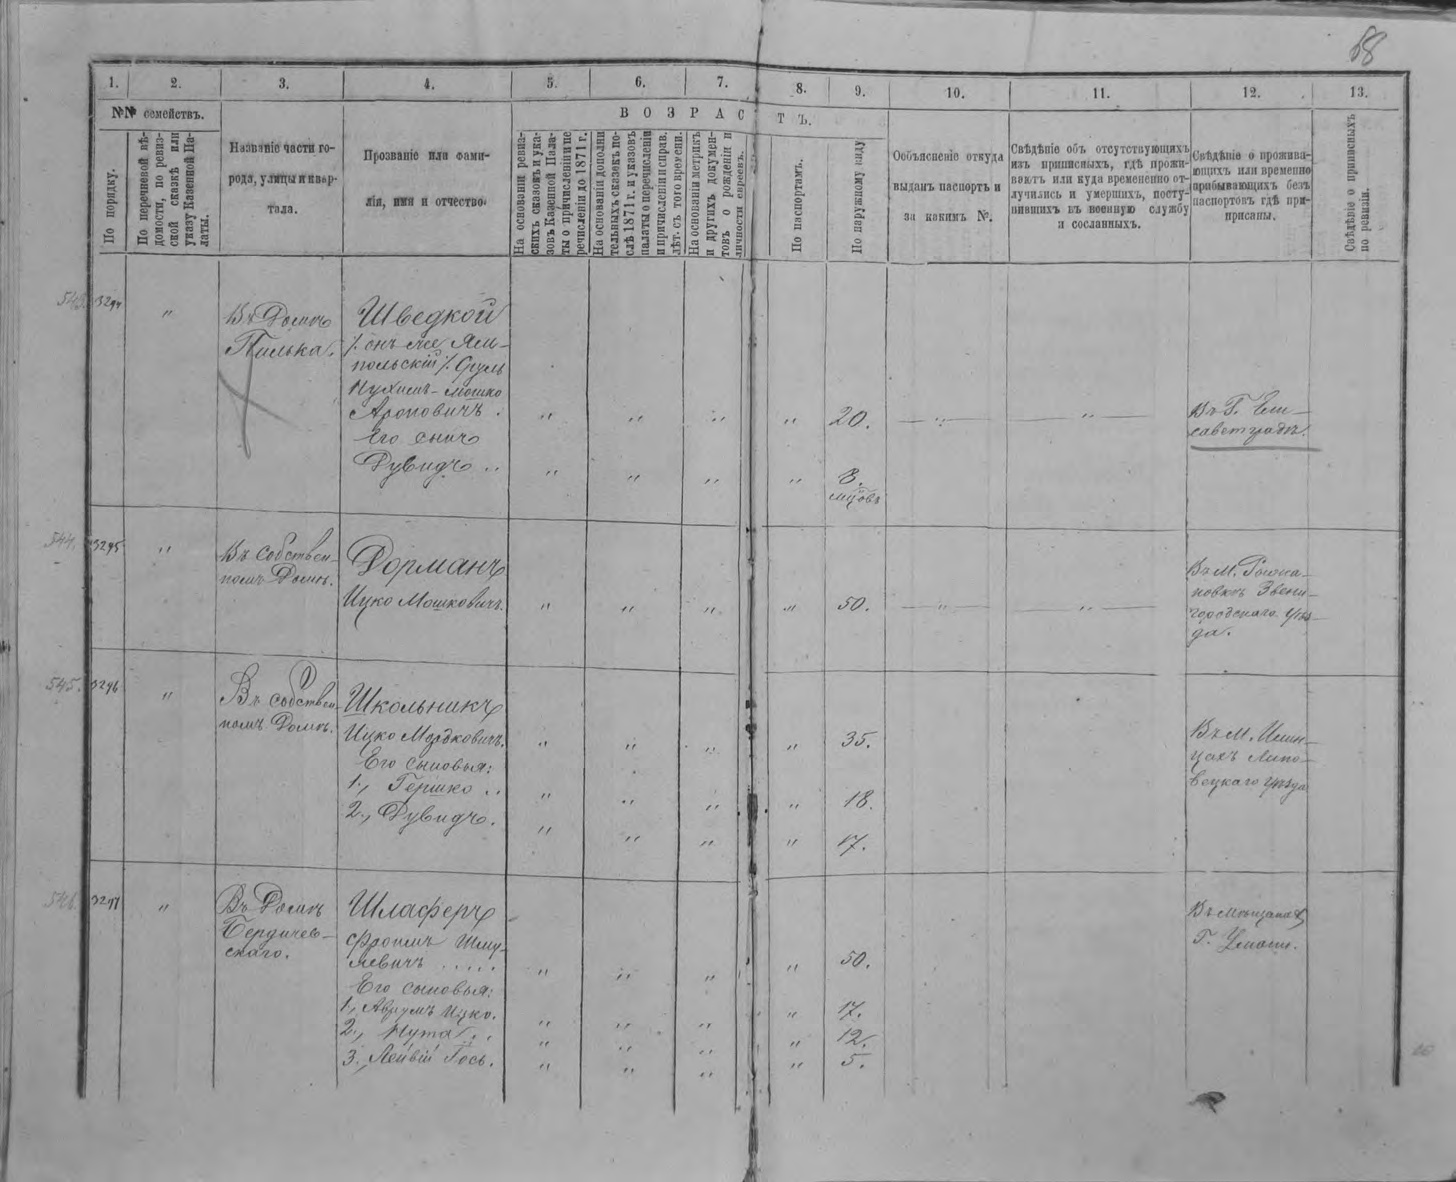 68
1. 2. 3. 4. 5. 6. 7. 8. 9. 10. 11. 12. 13.
№№ семействъ.
В О З Р А С Т Ъ.
По порядку.
По перечневой вѣ-
домости, по ревиз-
ской сказкѣ или
указу Казенной Па-
латы.
Названіе части го-
рода, улицы и квар-
тала.
Прозваніе или фами-
лія, имя и отчество
На основаніи ревиз-
скихъ сказокъ и ука-
зовъ Казенной Пала-
ты о причисленіи и пе
речисленіи до 1871 г.
На основаніи дополни
тельныхъ сказокъ по-
слѣ 1871 г. и указовъ
палаты о перечисленіи
и причисленіи и справ.
лѣт. съ того времени.
На основаніи метрикъ
и другихъ докумен-
товъ о рожденіи и
личности евреевъ.
По паспортамъ.
По наружному виду
Объясненіе откуда
выданъ паспортъ и
за какимъ №.
Свѣдѣніе объ отсутствующихъ
изъ приписныхъ, гдѣ прожи-
ваютъ или куда временно от-
лучились и умершихъ, посту-
пившихъ въ военную службу
и сосланныхъ.
Свѣдѣніе о прожива-
ющихъ или временно
прибывающихъ безъ
паспортовъ гдѣ при-
писаны.
Свѣдѣніе о приписныхъ
по ревизіи.
543. 3294 "
Въ Домѣ
Пилька.
Шведкой
/. онъ же Ям-
польскій /. Сруль
Нухимъ-Мошко
Ароновичъ. " " " " 20. " "
Его сынъ
Дувидъ .. " " " " 8.
мцовъ
Въ Г. Ели-
саветградѣ.
544. 3295 "
Въ собствен-
номъ Домѣ.
Дорманъ
Ицко Мошковичъ. " " " " 50. " "
Въ М.
Звени-
городскаго уѣз-
да.
545. 3296 "
Въ собствен-
номъ Домѣ.
Школьникъ
Ицко Мордковичъ. " " " " 35.
Его сыновья:
1., Гершко .. " " " " 18.
2., Дувидъ. " " " " 17.
Въ М. Илин-
цахъ Липо-
вецкаго уѣзда
546. 3297 "
Въ Домѣ
Бердичев-
скаго.
Шлаферъ
Фроимъ Шму-
левичъ ..... " " " " 50.
Его сыновья:
1., Аврумъ Ицко. " " " " 17.
2., Нута .. " " " " 12.
3., Лейвій Іось. " " " " 5.
Въ мѣщанахъ
Г. Умани.